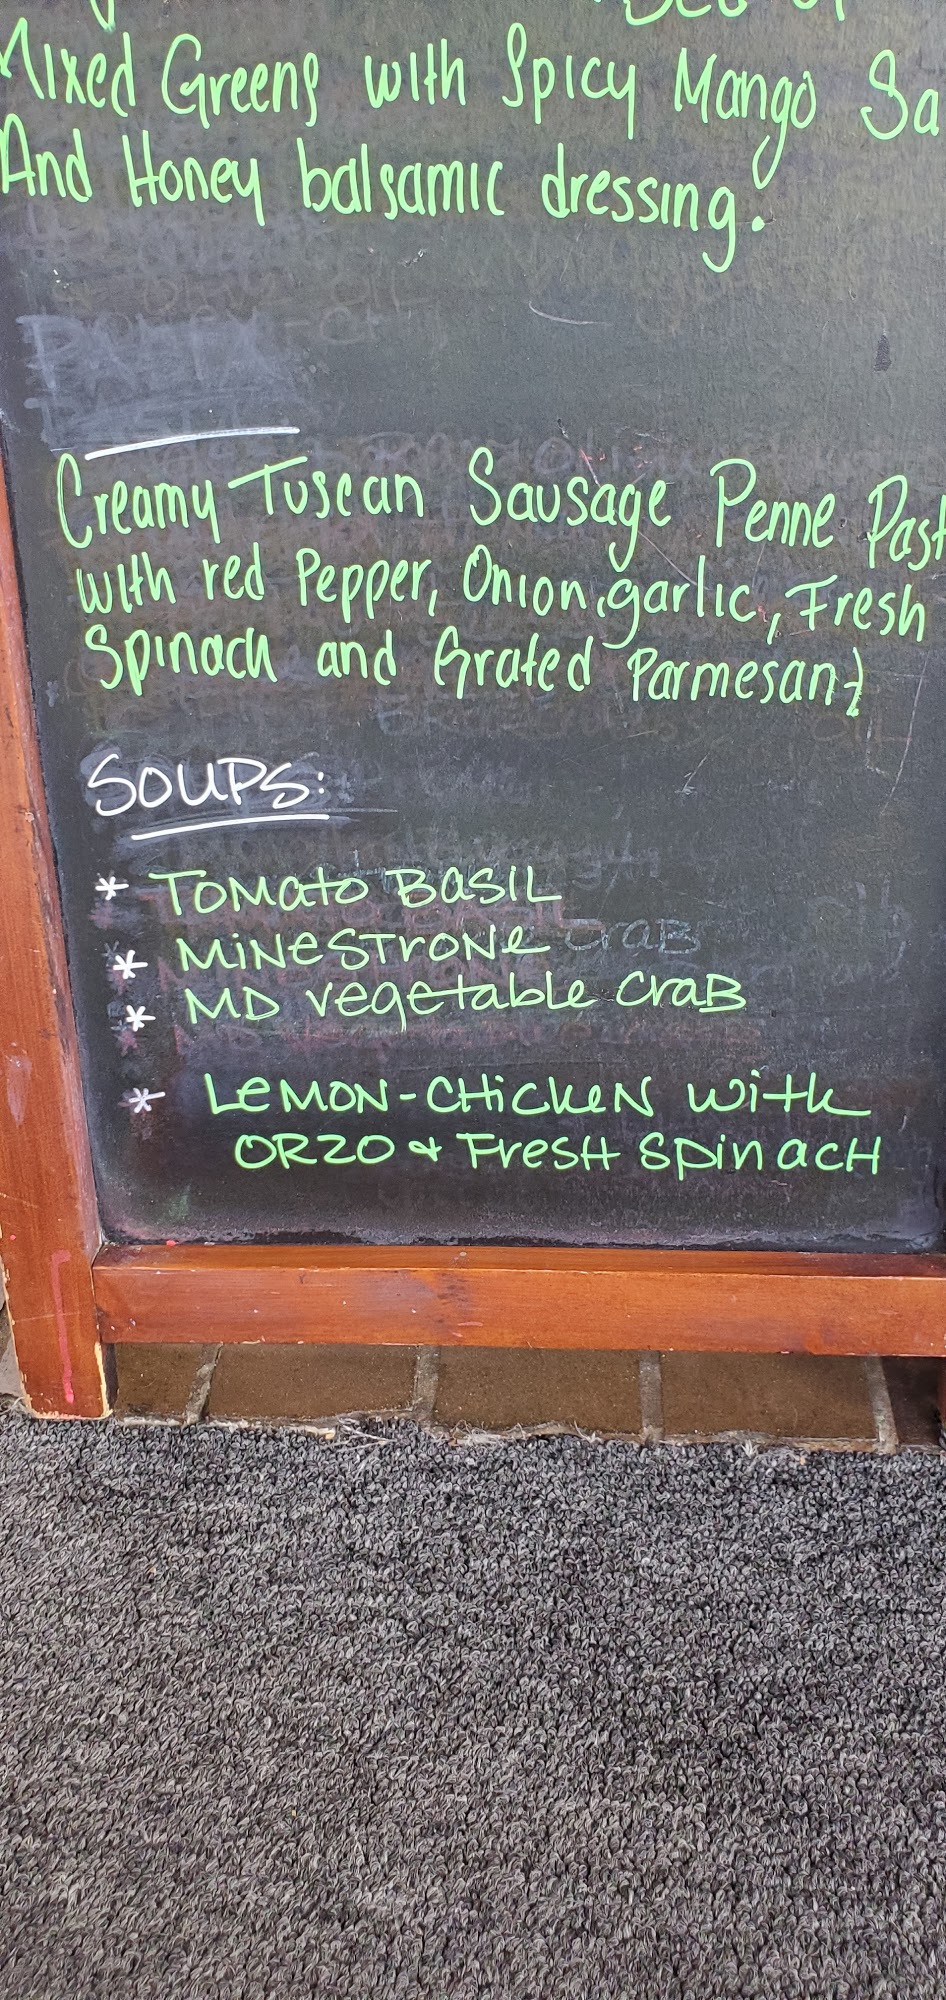 Bed of
Mixed Greens with Spicy Mango Sa
And Honey balsamic dressing.
Creamy Tuscan Sausage Penne Past
with red Pepper, Onion, garlic, Fresh
Spinach and Grated Parmesan}
SOUPS:
* TOMato BaSiL
* MiNeSTRONe
* MD vegetable CraB
* LeMON-CHicKeN With
ORZO & FresH SpinacH